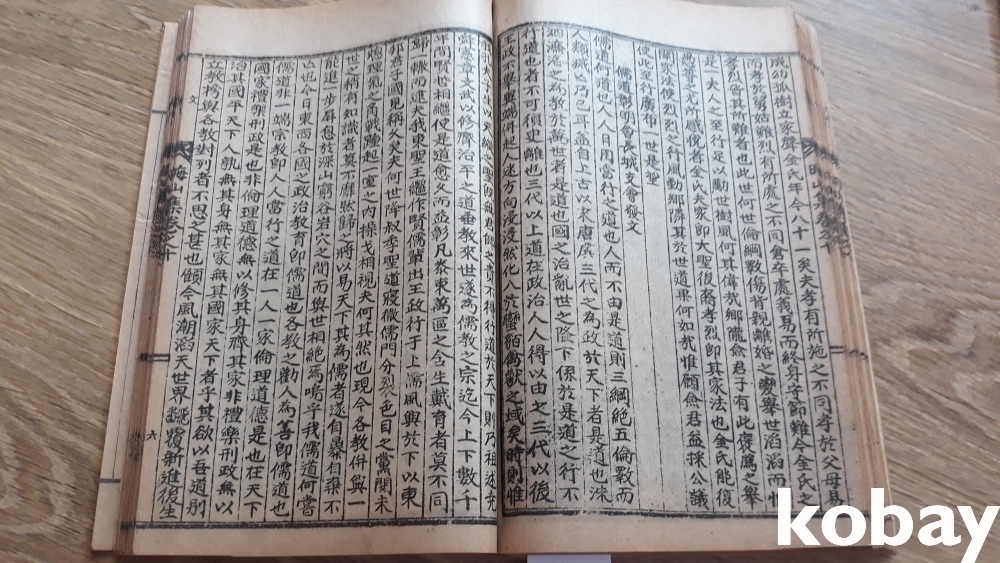 成幼孤樹立家聲金氏年今八十一矣夫孝有所施之不同孝於父母易
而孝於舅姑難烈有所處之不同倉卒處義易而終身守節難今金氏之
孝烈皆其所難者也此世何世倫綱斁傷背親離婚之變擧世滔滔而惟
是一夫人之至行足以勵世樹風何其偉哉鄕隴僉君子有此褒薦之擧
爲善之尤所感役者金氏夫家卽大聖後裔孝烈卽其家法也金氏能
聞之次使烈烈之行風動鄰隣其於世道果何如哉惟願僉君益採公議
使此至行廣布一世是望
儒道彰明會長城支會發文
儒道何道也人人日用當行之道也人而不由是道則三綱絶五倫斁而
人類滅乃已耳盖自上古以來唐虞三代之爲政於天下者是道也洙
泗濂洛之爲敎於萬世者是道也國之治亂世之隆下係於是道之行不
行道也者不可須臾離也三代以上道在政治人人得以由之三代以後
政不擧異端倂起人迷方向浸浸然化入於蠻貊禽獸之域矣時則惟
孔夫子生以天縱之聖
憲章文武以修齊治平之道垂敎來世遂爲儒敎之宗迄今上下數千
年間賢哲相繼使是道愈久而益彰凡泰東萬區之含生戴育者莫不同
歸一轍而逮夫我東聖王繼作賢儒輩出王政行于上儒風興於下以東
邦君子國見稱久矣夫何世降叔季聖道寢微儒門分裂色目之黨閥未
之角戟隆起一室之內操戈相視夫何其然也現今各敎倂興一
世之稍有知識者莫不靡然歸之將以易天下其爲儒者遂自暴自棄不
能進一步屛息於深山窮谷岩穴之間而與世相絶焉嗚乎我儒道何嘗
凶也今日東西各國之政治敎育卽儒道也各敎之勸人爲善卽儒道也
儒道非一端宗敎卽人人當行之道在一人一家倫理道德是也在天下
國家禮樂刑政是也非倫理道德無以修其身齊其家非禮樂刑政無以
治其國平天下人孰無其身無其家無其國家天下者乎其欲以吾道別
立敎務與各敎對列者不思之甚也顧今風潮滔天世界飜覆新進後生
文
梅山集卷之十
六
kobay